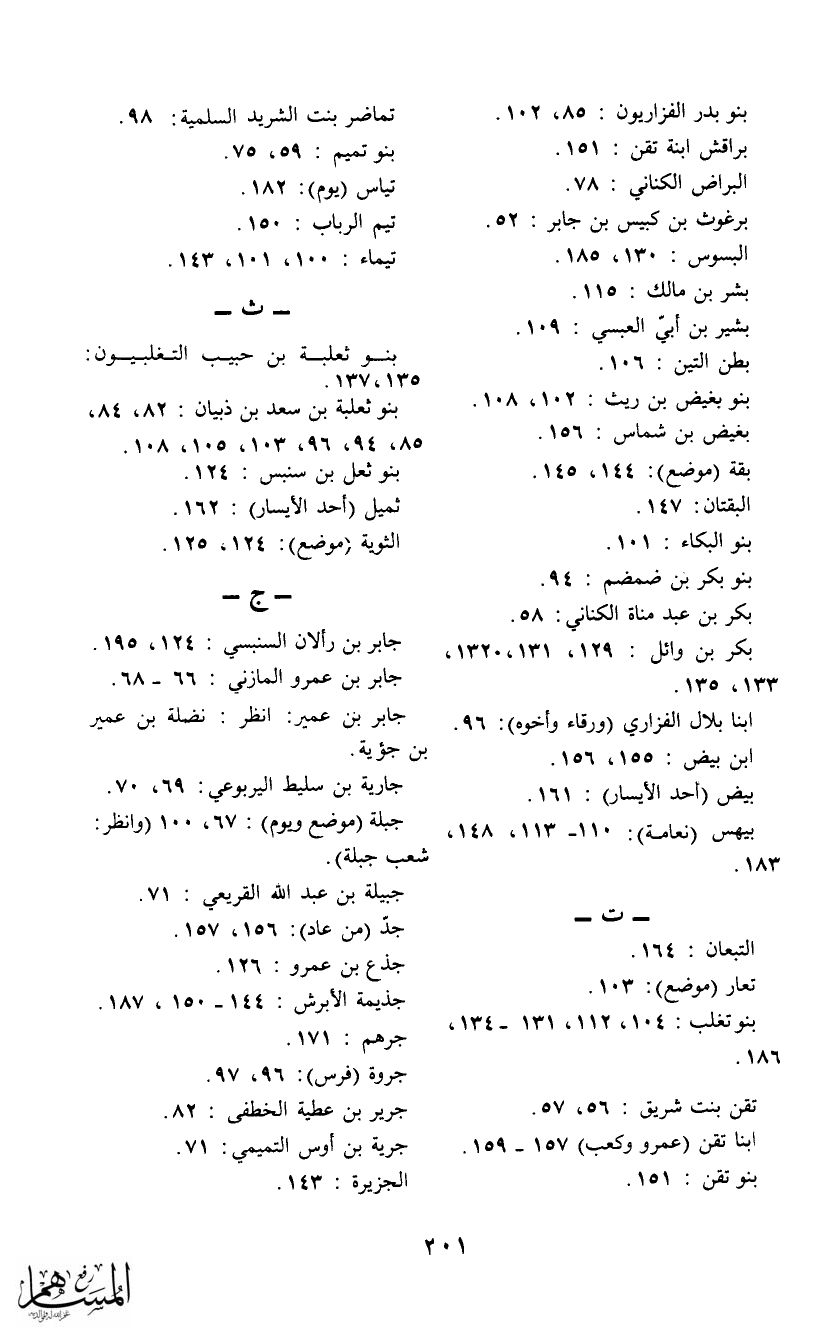 بنو بدر الفزاريون : ٨٥، ١٠٢.
براقش ابنة تقن : ١٥١.
البراض الكناني : ٧٨.
برغوث بن كبيس بن جابر : ٥٢.
البسوس : ١٣٠، ١٨٥.
بشر بن مالك : ١١٥.
بشير بن أبيّ العبسي : ١٠٩.
بطن التين : ١٠٦.
بنو بغيض بن ريث : ١٠٢، ١٠٨.
بغيض بن شماس : ١٥٦.
بقة (موضع): ١٤٤، ١٤٥.
البقتان: ١٤٧.
بنو البكاء : ١٠١.
بنو بكر بن ضمضم : ٩٤.
بكر بن عبد مناة الكناني: ٥٨.
بكر بن وائل : ١٢٩، ١٣١،١٣٢٠،
١٣٣، ١٣٥.
ابنا بلال الفزاري (ورقاء وأخوه): ٩٦.
ابن بيض : ١٥٥، ١٥٦.
بيض (أحد الأيسار) : ١٦١.
بيهس (نعامة): ١١٠ـ ١١٣، ١٤٨،
١٨٣.
ـ ت ـ
التبعان : ١٦٤.
تعار (موضع): ١٠٣.
بنو تغلب : ١٠٤، ١١٢، ١٣١ ـ١٣٤،
١٨٦.
تقن بنت شريق : ٥٦، ٥٧.
ابنا تقن (عمرو وكعب) ١٥٧ ـ ١٥٩.
بنو تقن : ١٥١.
تماضر بنت الشريد السلمية: ٩٨.
بنو تميم : ٥٩، ٧٥.
تياس (يوم): ١٨٢.
تيم الرباب : ١٥٠.
تيماء : ١٠٠، ١٠١، ١٤٣.
ـ ث ـ
بنو ثعلبة بن حبيب التغلبيون:
١٣٥،١٣٧.
بنو ثعلبة بن سعد بن ذبيان : ٨٢، ٨٤،
٨٥، ٩٤، ٩٦، ١٠٣، ١٠٥، ١٠٨.
بنو ثعل بن سنبس : ١٢٤.
ثميل (أحد الأيسار) : ١٦٢.
الثوية (موضع): ١٢٤، ١٢٥.
ـ ج ـ
جابر بن رألان السنبسي : ١٢٤، ١٩٥.
جابر بن عمرو المازني : ٦٦ ـ ٦٨.
جابر بن عمير: انظر : نضلة بن عمير
بن جؤية.
جارية بن سليط اليربوعي: ٦٩، ٧٠.
جبلة (موضع ويوم) : ٦٧، ١٠٠ (وانظر:
شعب جبلة).
جبيلة بن عبد الله القريعي : ٧١.
جدّ (من عاد): ١٥٦، ١٥٧.
جذع بن عمرو : ١٢٦.
جذيمة الأبرش : ١٤٤ـ ١٥٠ ، ١٨٧.
جرهم : ١٧١.
جروة (فرس): ٩٦، ٩٧.
جرير بن عطية الخطفى : ٨٢.
جرية بن أوس التميمي: ٧١.
الجزيرة : ١٤٣.
٢٠١
رفع
المساهم